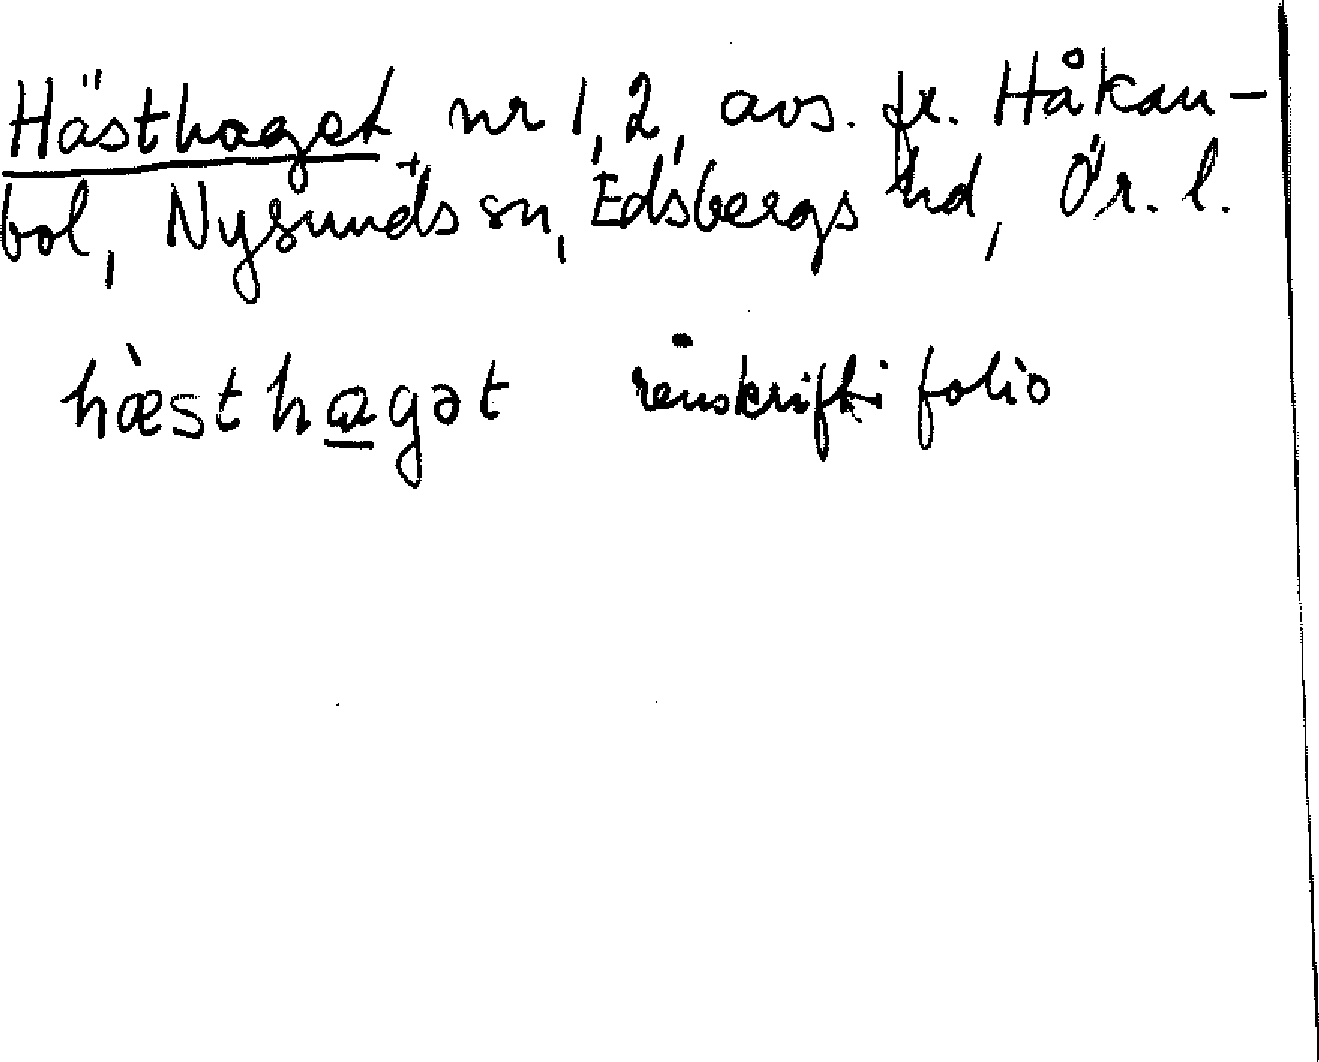 Hästhaget nr 1, 2, avs. fr. Håkan-
bol, Nysunds sn, Edsbergs hd, Ör. l.
hæ̀sthagət renskrift i folio